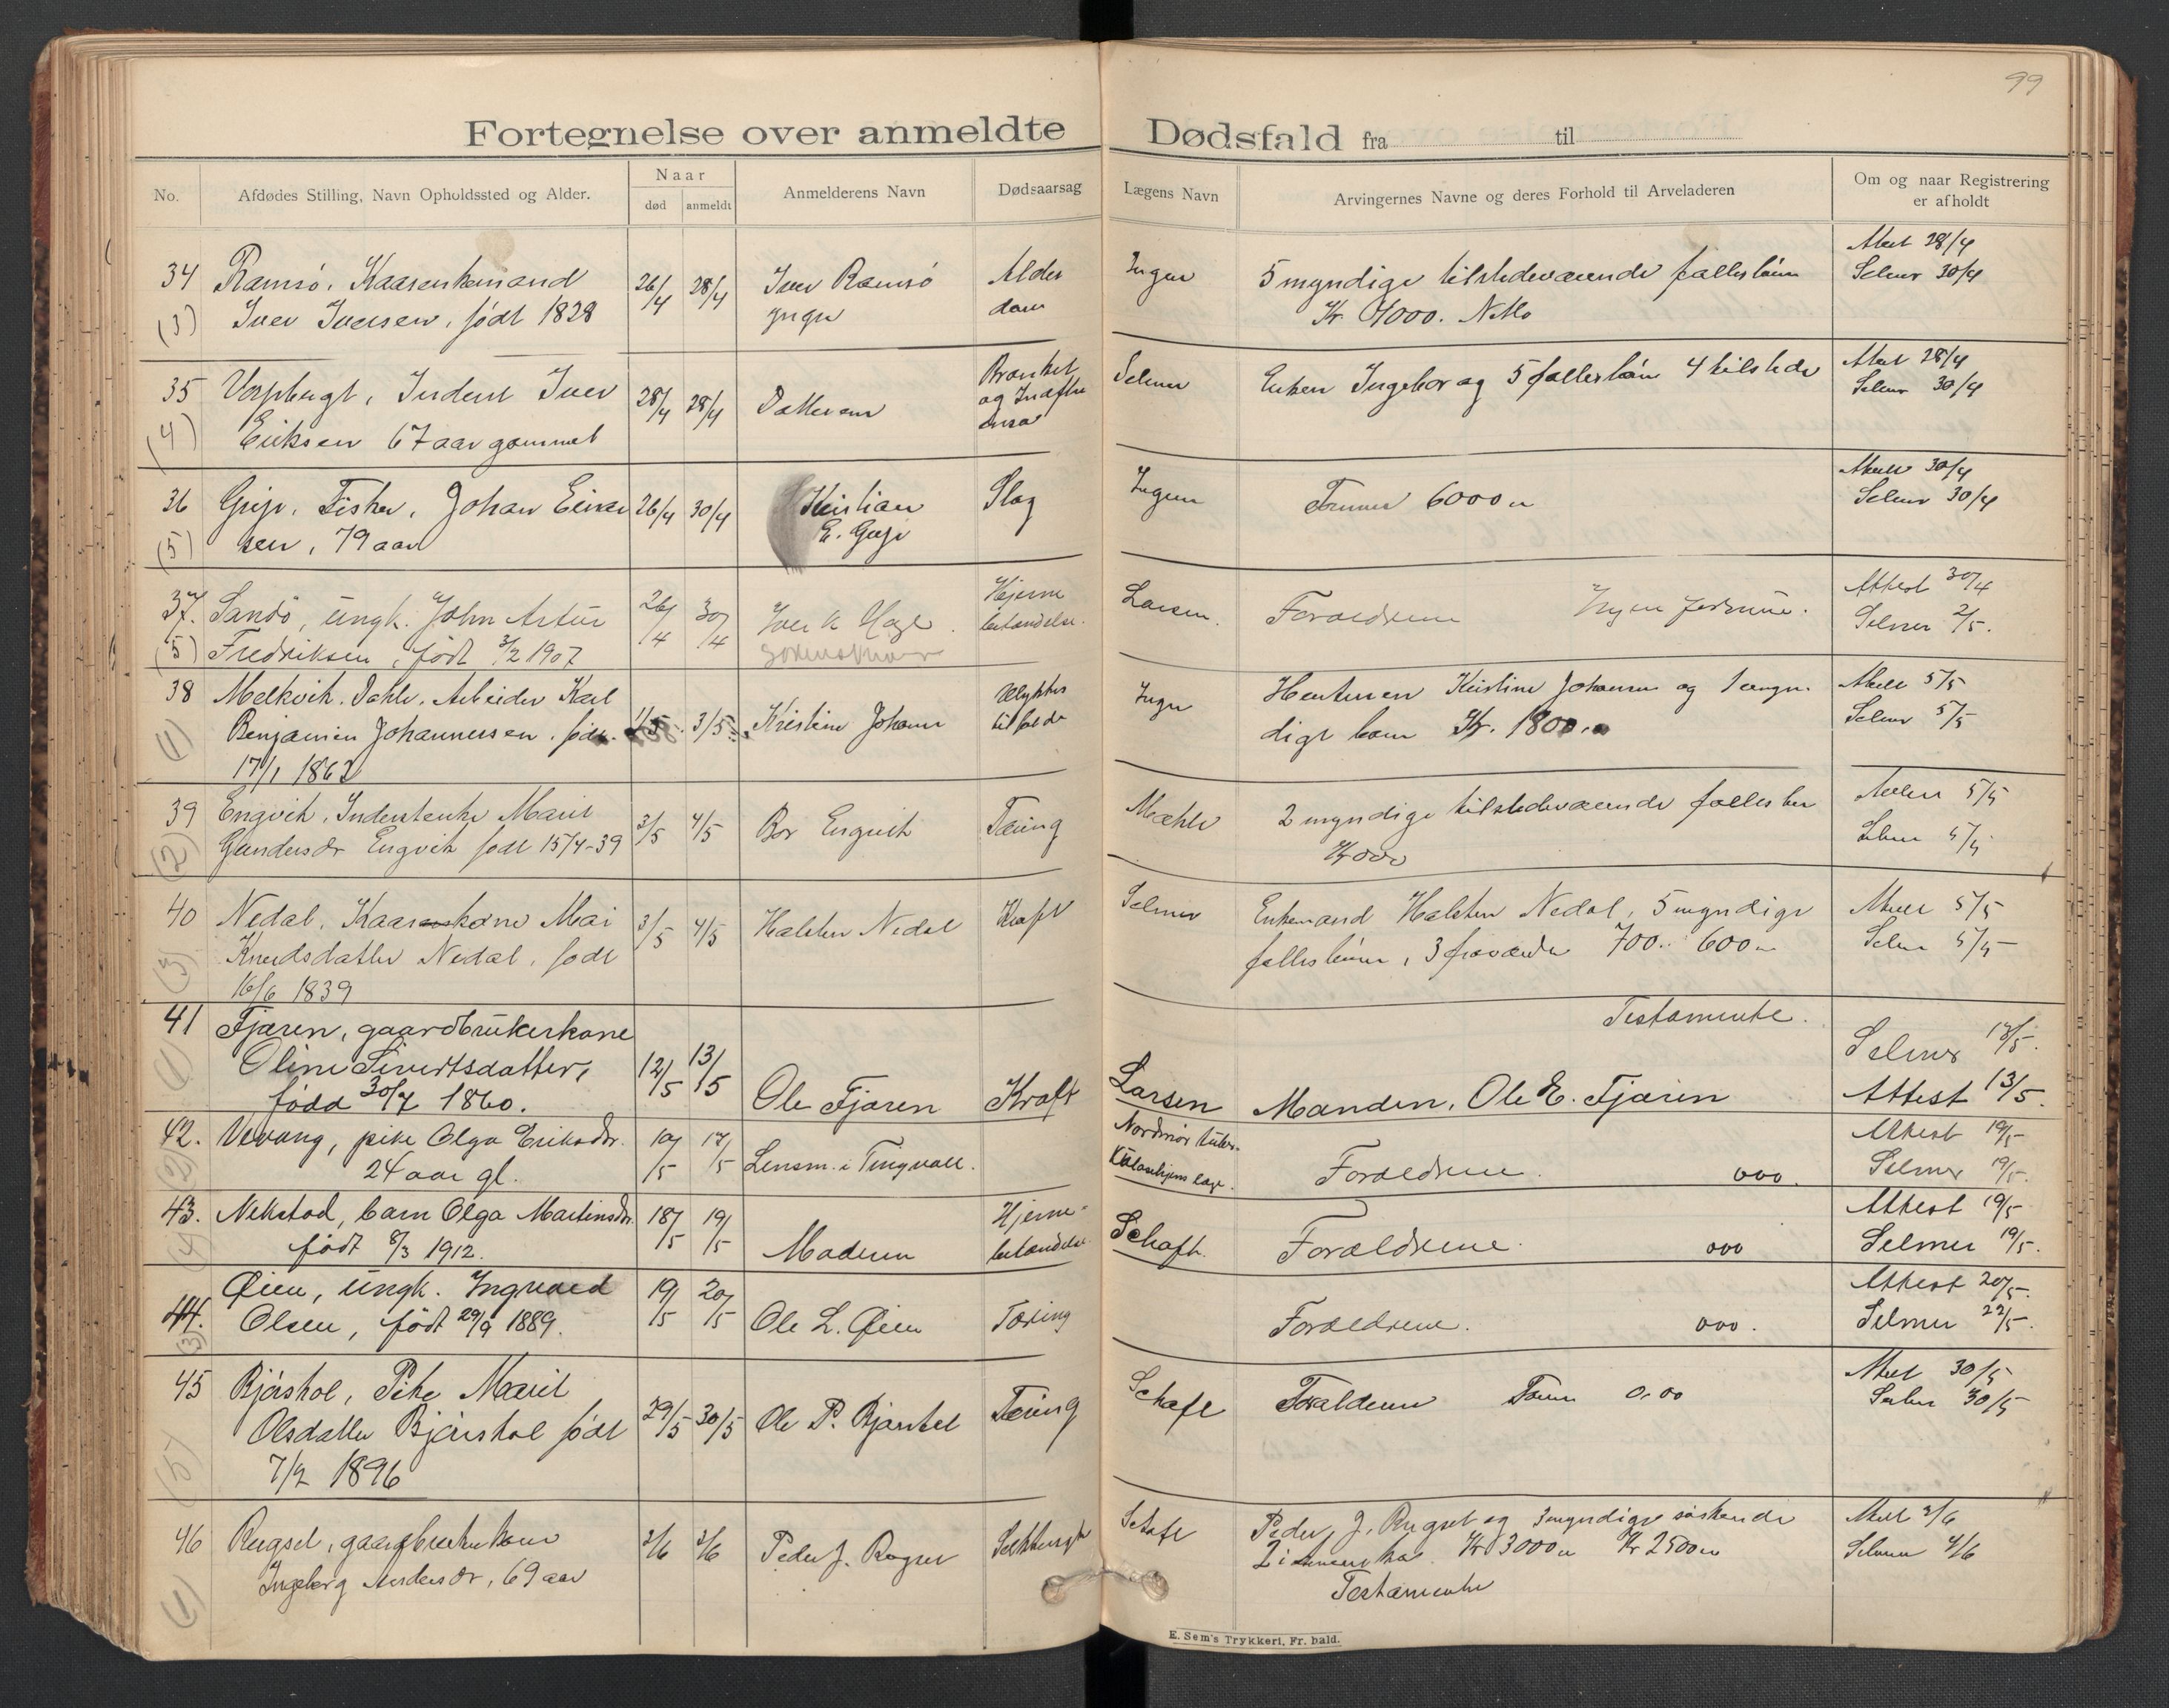 99
Fortegnelse over anmeldte Dødsfald fra til
No.
Afdødes Stilling, Navn Opholdssted og Alder.
Naar
død anmeldt
Anmelderens Navn
Dødsaarsag
Lægens Navn
Arvingernes Navne og deres Forhold til Arveladeren
Om og naar Registrering
er afholdt
34 Ramsø, Kaarenkemand 26/4 28/4 Iver Ramsø Alder Ingen 5 myndige tilstedeværende fællesbørn Attest 28/4
(3) Iver Iversen, født 1828 yngre dom Kr. 4000. Netto Selmer 30/4
35 Vorpbugt, Inderst Iver 28/4 28/4 Datteren Bronkit Selmer Enken Ingebor og 5 fællesbørn 4 tilstede Attest 28/4
(4) Eriksen 67 aar gammel og Influ enza Selmer 30/4
36 Grip, Fisker, Johan Einar 26/4 30/4 Kristian Slag Ingen Formue 6000 Attest 30/4
(5) sen, 79 aar E. Grip Selmer 30/4
37. Sandø, ungk. John Artur 26/4 30/4 Iver K Hage Hjerne Larsen. Forældrene Ingen formue. Attest 30/4
(5) Fredriksen, født 3/2 1907 betændelse. Selmer 2/5.
38 Melkvik, Dahle, Arbeider Karl 1/5 3/5 Kristine Johanns Ulykkes Ingen Hustruen Kristine Johanns og 1 umyn Attest 5/5
(1) Benjamin Johannessen, født tilfælde digt barn Kr. 1800 Selmer 5/5
17/1 1862
39 Engvik, Inderstenke Marit 3/5 4/5 Bor Engvik Tæring Mæhle 2 myndige tilstedeværende fællesbø Attest 5/5
(2) Gundersdr Engvik født 15/4-39 Kr 000 Selmer 5/5
40 Nedal, Kaarkone Mari 3/5 4/5 Halsten Nedal Kræft Selmer Enkemand Halsten Nedal, 5 myndige Attest 5/5
(3) Knudsdatter Nedal, født fællesbørn, 3 fraværende 700.. 600 Selmer 5/5
16/6 1839
Testamente.
41 Fjæren, gaardbrukerkone Selmer 13/5.
(1) Oline Sivertsdatter, 12/5 13/5 Ole Fjæren Kræft Larsen Manden, Ole E. Fjæren Attest 13/5.
född 30/7 1860.
42. Vevang, pike Olga Eriksdr. 10/5 17/5 Lensm. i Tingvoll. Nordmør tuber- Attest 19/5
(2) 24 aar gl. kulosehjems læge. Forældrene. 000. Selmer 19/5.
43. Nekstad, barn Olga Martinsdr. 18/5 19/5 Moderen Hjerne- Schaft. Forældrene. 000 Attest 19/5
(4) født 8/3 1912. betændelse Selmer 19/5.
44. Øien, ungk. Ingvald 19/5 20/5 Ole L. Øien Tæring Forældrene. 000. Attest 20/5.
(3) Olsen, født 29/9 1889. Selmer 22/5.
45 Bjørshol, Pike Marit 29/5 30/5 Ole P. Bjørshol Tæring Schaft Forældrene Form 0.00 Attest 30/5
(5) Olsdatter Bjørshol født Selmer 30/5
7/2 1896
46 Rugset, gaardbrukerkone 2/6 3/6 Peder J. Rugset Schaft Peder J. Rugset og 3 myndige søskende Attest 3/6
(1) Ingeborg Andersdr, 69 aar Kr 3000 Kr 2500 Selmer 4/6
Testamente
E. Sem's Trykkeri, Fr. hald.